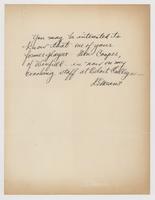 You may be interested to
know that one of your
former players Don Cooper,
of Winfield is now on my
coaching staff at Hobart College